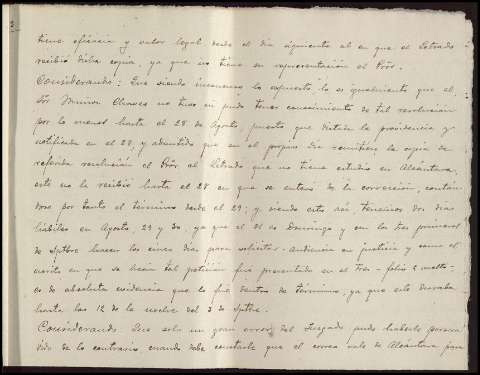 tiene eficacia y valor legal desde el dia siguiente al en que el Letrado
recibió dicha copia, ya que no tiene su representación el Pdor.
Considerando: Que siendo inconcuso lo expuesto lo es igualmente que el
Sor Munoz Chaves no tuvo ni pudo tener conocimiento de tal resolucion
por lo menos hasta el 28 de Agosto puesto que dictada la providencia y
notificada en el 22, y admitido que en el propio dia remitiera la copia de
referida resolucion el Pdor. al Letrado que no tiene estudio en Alcántara,
este no la recibio hasta el 28 en que se entero de la correccion, contan
dose por tanto el termino desde el 29; y siendo esto asi, tenemos dos dias
habiles en Agosto, 29 y 30, ya que el 31 es Domingo y en los tres primeros
de Sptbre hacen los cinco dias para solicitar audiencia en justicia y como el
escrito en que se hacia tal peticion fue presentado en el tres - folio 2 vuelto -
es de absoluta evidencia que lo fué dentro de término, ya que este duraba
hasta las 12 de la noche del 3 de Sptbre.
Considerando Que solo un gran error del Juzgado pudo haberlo persua
dido de lo contrario, cuando debe constarle que el correo sale de Alcántara para